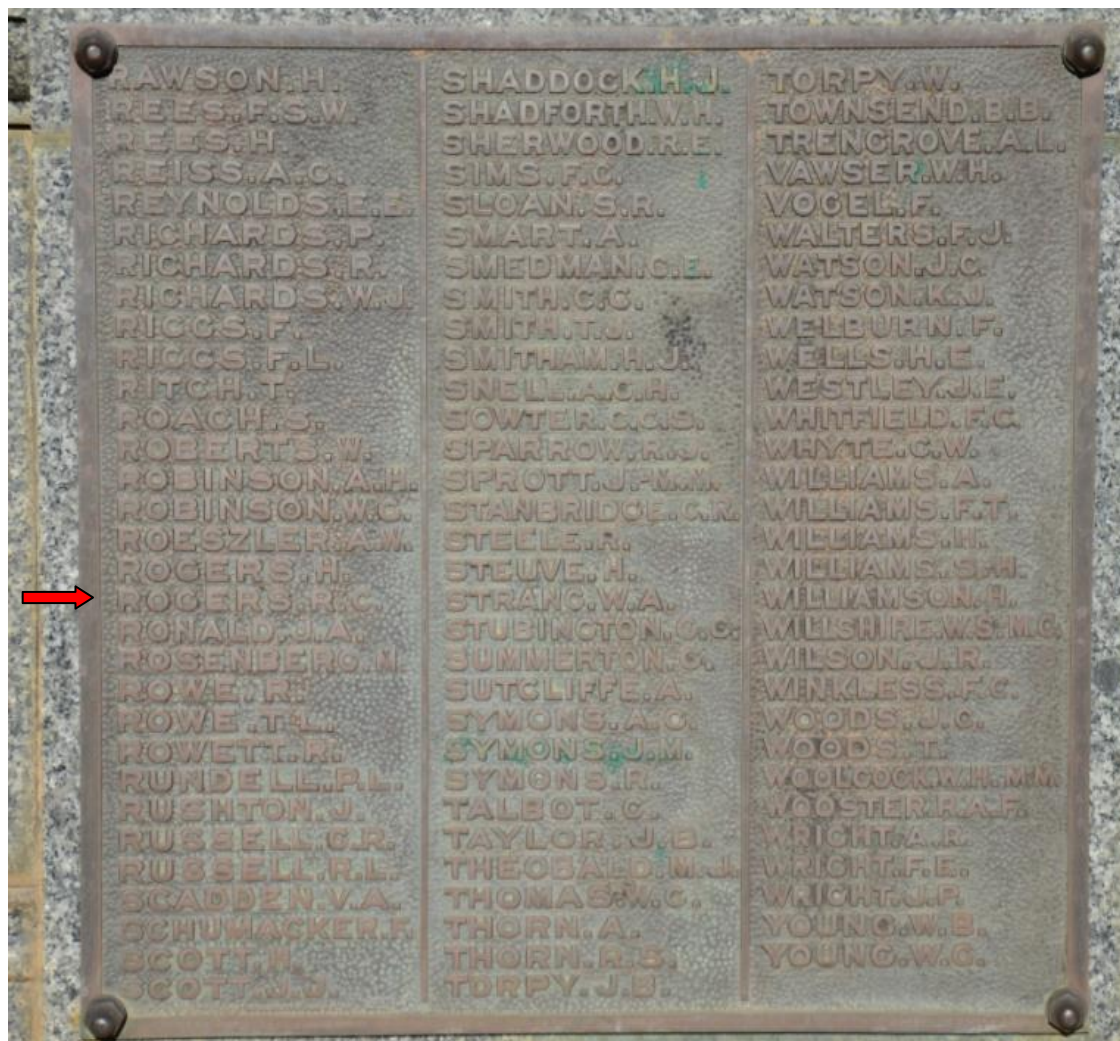 RAWSON.H.
REES.F.S.W.
REES.H
REISS.A.C.
REYNOLDS.E.E.
RICHARDS.P.
RICHARDS.R.
RICHARDS.W.J.
RIGGS.F.
RIGGS.F.L.
RITCH.T.
ROACH.S.
ROBERTS.W.
ROBINSON.A.H.
ROBINSON.W.G.
ROESZLER.A.W.
ROGERS.H.
ROGERS.R.C.
RONALD.J.A.
ROSENBERG.M
ROWE.R.
ROWE.T.L.
ROWETT.R.
RUNDELL.P.L.
RUSHTON.J.
RUSSELL.G.R.
RUSSELL.R.L.
SCADDEN.V.A.
SCHUMACKER.F.
SCOTT.H.
SCOTT.J.J.
SHADDOCK.H.J.
SHADFORTH.W.H.
SHERWOOD.R.E.
SIMS.F.C.
SLOAN.S.R.
SMART.A.
SMEDMAN.C.E.
SMITH.C.C.
SMITH.T.J.
SMITHAM.H.J.
SNELL.A.G.H.
SOWTER.C.C.S.
SPARROW.R.J.
SPROTT.J.P.M.M.
STANBRIDGE.C.R.
STEELE.R.
STEUVE.H.
STRANG.W.A.
STUBINGTON.C.C.
SUMMERTON.G.
SUTCLIFFE.A.
SYMONS.A.G.
SYMONS.J.M.
SYMONS.R.
TALBOT.C.
TAYLOR.J.B.
THEOBALD.M.J.
THOMAS.W.G.
THORN.A.
THORN.R.S.
TORPY.J.B.
TORPY.W.
TOWNSEND.B.B.
TRENGROVE.A.L.
VAWSER.W.H.
VOGEL.F.
WALTERS.F.J.
WATSON.J.C.
WATSON.K.J.
WELBURN.F.
WELLS.H.E.
WESTLEY.J.E.
WHITFIELD.F.C.
WHYTE.C.W.
WILLIAMS.A.
WILLIAMS.F.T.
WILLIAMS.H.
WILLIAMS.S.H.
WILLIAMSON.H.
WILLSHIRE.W.S.M.C.
WILSON.J.R.
WINKLESS.F.C.
WOODS.J.C.
WOODS.T.
WOOLCOCK.W.H.M.M.
WOOSTER.R.A.F.
WRIGHT.A.R.
WRIGHT.F.E.
WRIGHT.J.P.
YOUNG.W.B.
YOUNG.W.G.